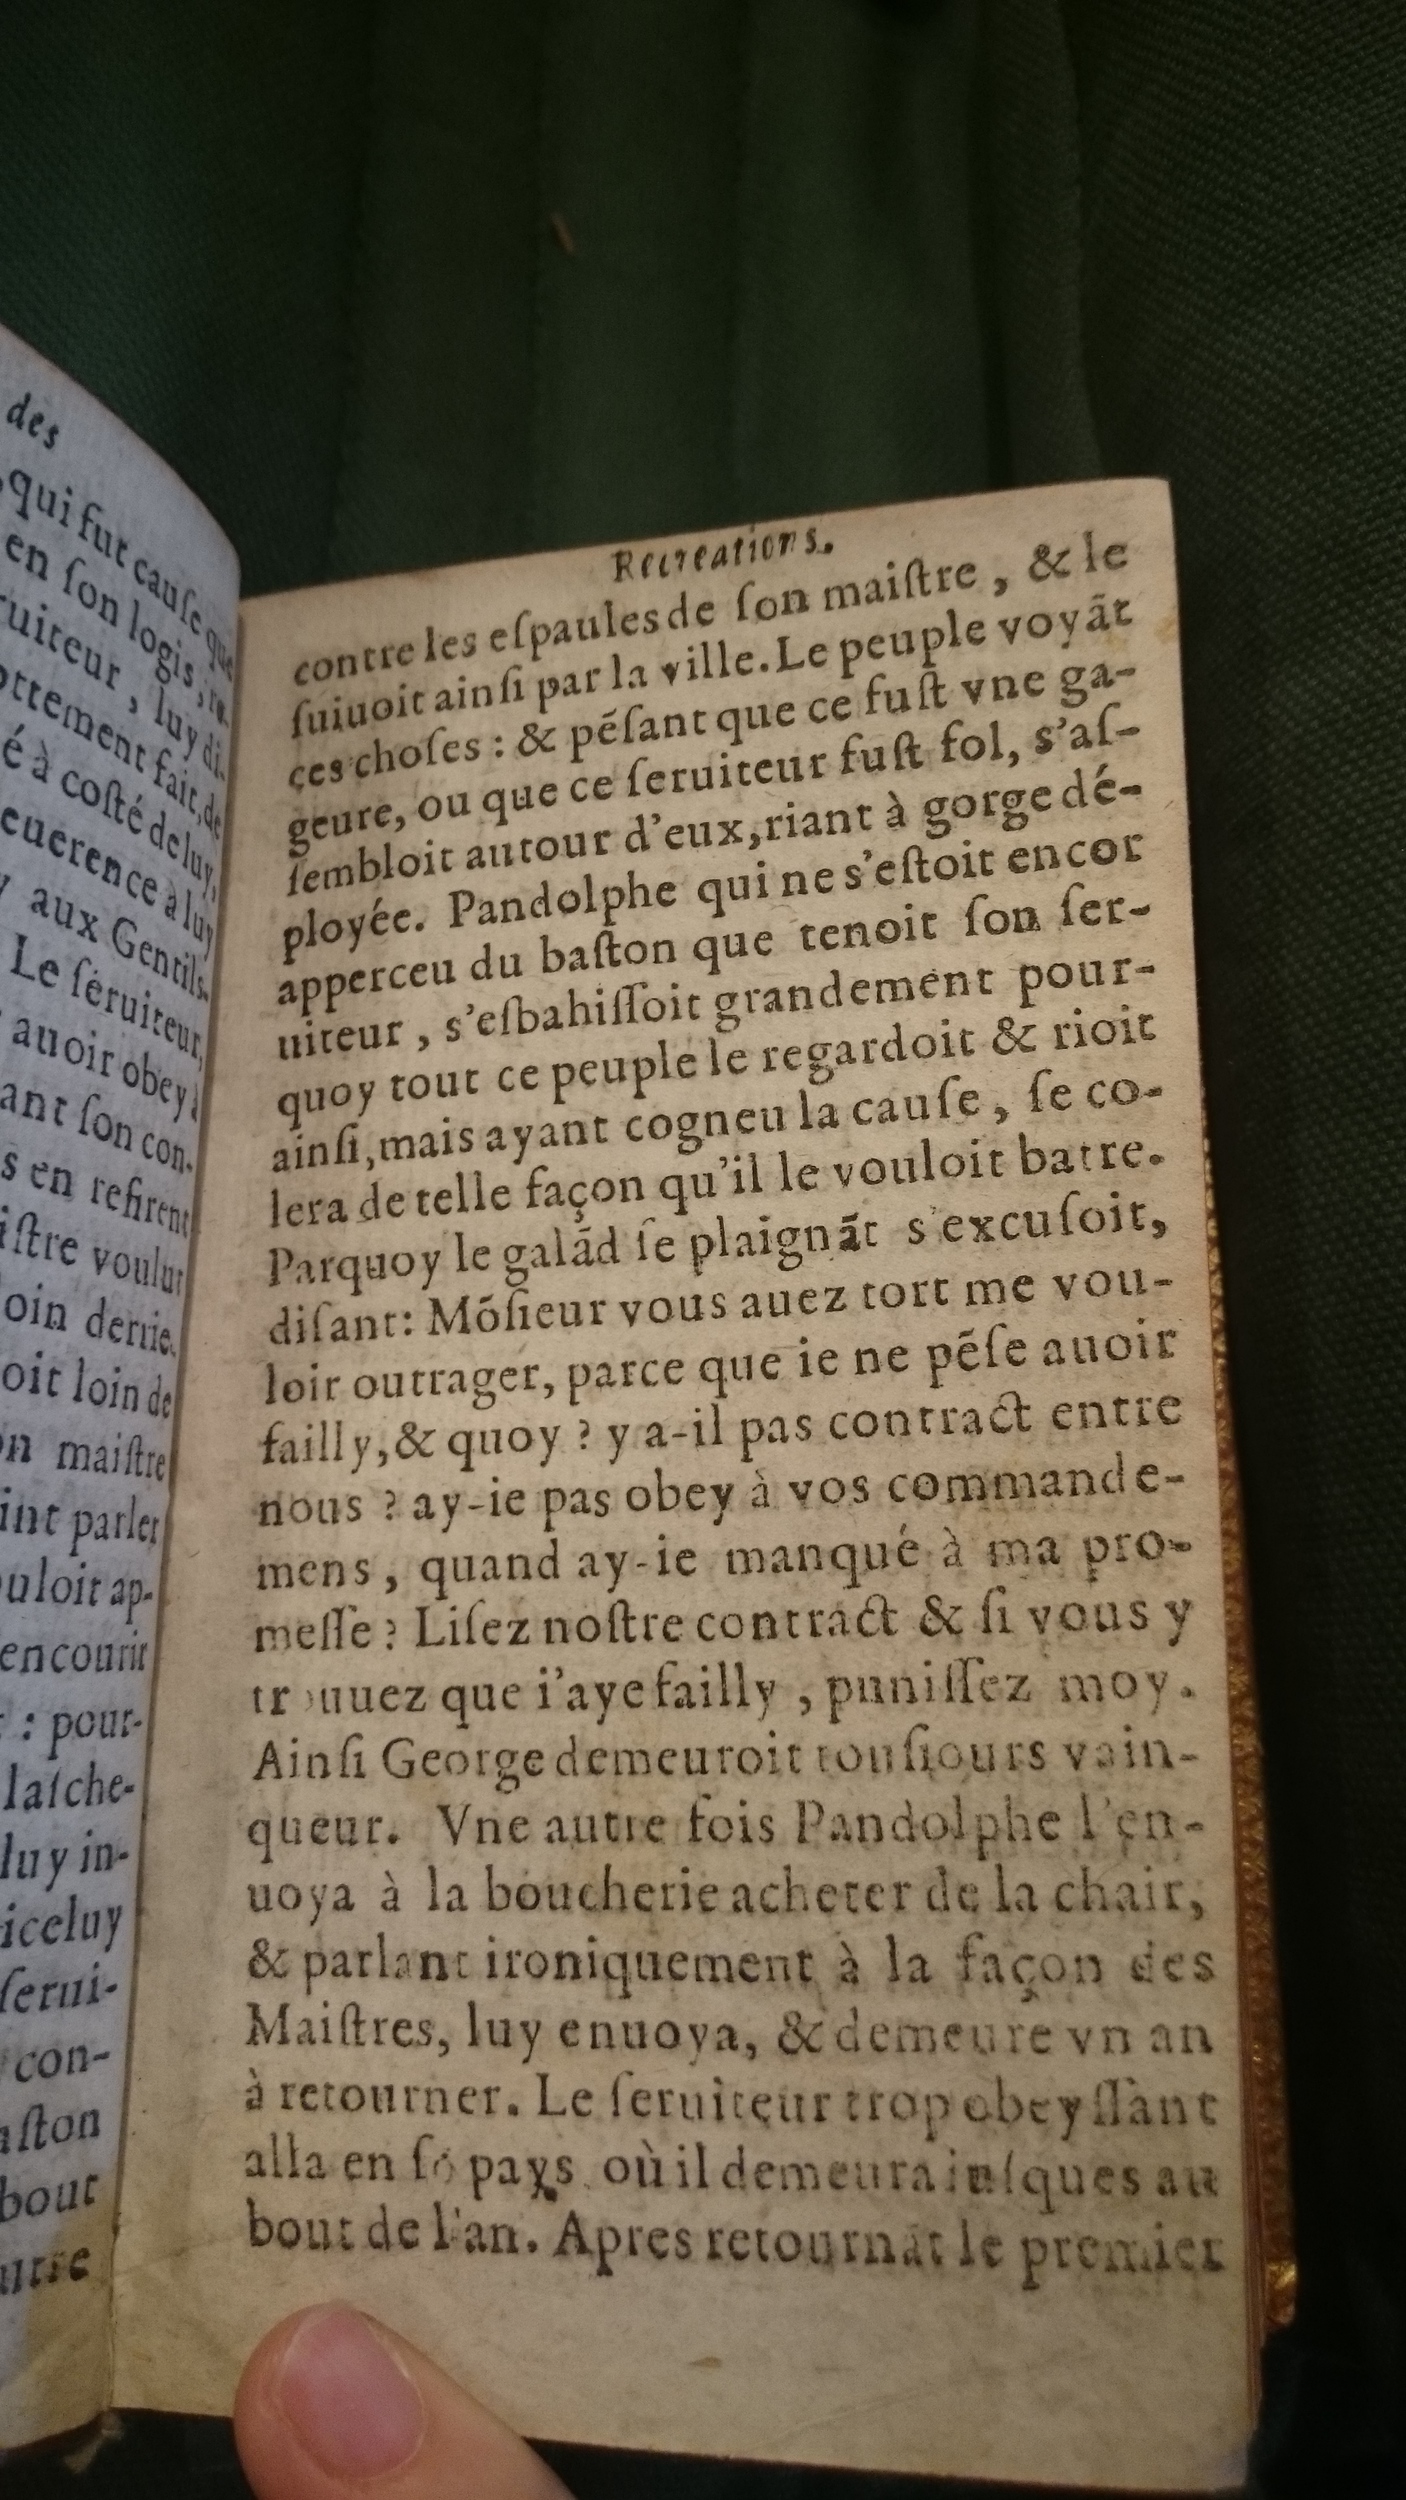 des
qui fut cauſe que
en ſon logis, re-
uiteur, luy di-
ottement fait, de
é à coſté de luy,
euerence à luy
aux Gentils-
Le ſeruiteur,
auoir obey à
ant ſon con-
s en refirent
iſtre voulut
oin derrie-
oit loin de
n maiſtre
int parler
uloit ap-
encourir
: pour-
laſche-
luy in-
iceluy
ſerui-
con-
aſton
bout
utre
Recreations.
contre les eſpaules de ſon maiſtre, & le
ſuiuoit ainſi par la ville. Le peuple voyãt
ces choſes : & pẽſant que ce fuſt vne ga-
geure, ou que ce ſeruiteur fuſt fol, s'aſ-
ſembloit autour d'eux, riant à gorge dé-
ployée. Pandolphe qui ne s'eſtoit encor
apperceu du baſton que tenoit ſon ſer-
uiteur, s'eſbahiſſoit grandement pour-
quoy tout ce peuple le regardoit & rioit
ainſi, mais ayant cogneu la cauſe, ſe co-
lera de telle façon qu'il le vouloit batre.
Parquoy le galãd ſe plaignãt s'excuſoit,
diſant: Mõſieur vous auez tort me vou-
loir outrager, parce que ie ne pẽſe auoir
failly, & quoy ? y a-il pas contract entre
nous ? ay-ie pas obey à vos commande-
mens, quand ay-ie manqué à ma pro-
meſſe ? Liſez noſtre contract & ſi vous y
trouuez que i'aye failly, puniſſez moy.
Ainſi George demeuroit touſiours vain-
queur. Vne autre fois Pandolphe l'en-
uoya à la boucherie acheter de la chair,
& parlant ironiquement à la façon des
Maiſtres, luy enuoya, & demeure vn an
à retourner. Le ſeruiteur trop obeyſſant
alla en ſõ pays où il demeura iuſques au
bout de l'an. Apres retournãt le premier